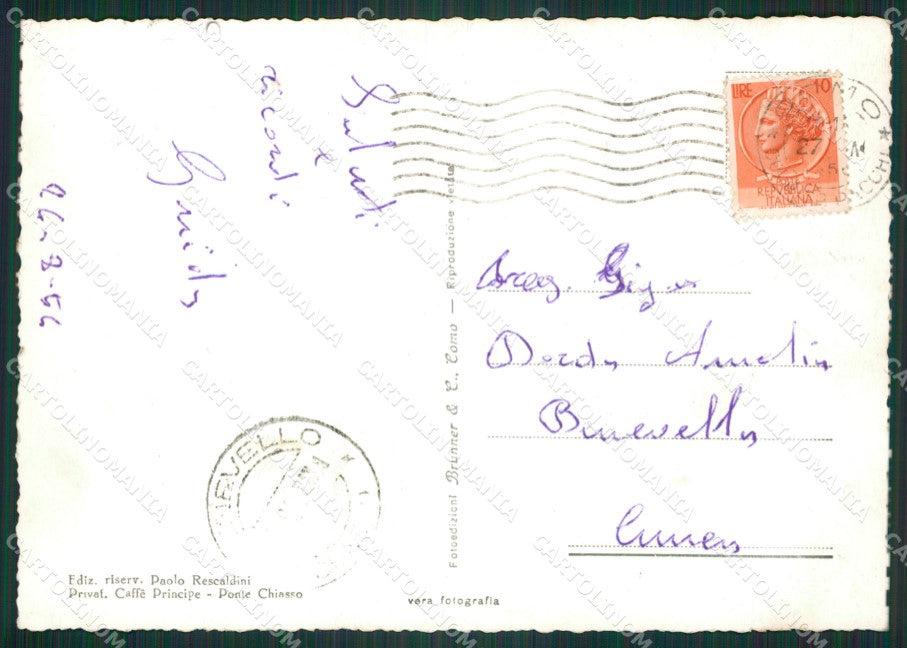 Saluti
e
ricordi
Guido
26-8-56
LIRE 10
REPVBBLICA
ITALIANA
Gigia
Amelia
Benevello
Cuneo
Fotoedizioni Brunner & C., Como — Riproduzione vietata
Ediz. riserv. Paolo Rescaldini
Privat. Caffè Principe - Ponte Chiasso
vera fotografia
CARTOLINOMANIA